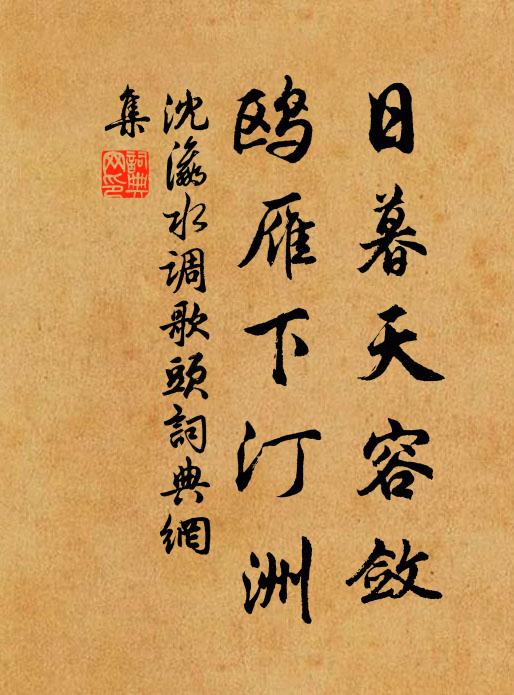 日暮天容敛
鸥雁下汀洲
沈瀛水调歌頭詞典網
集
詞典
网印